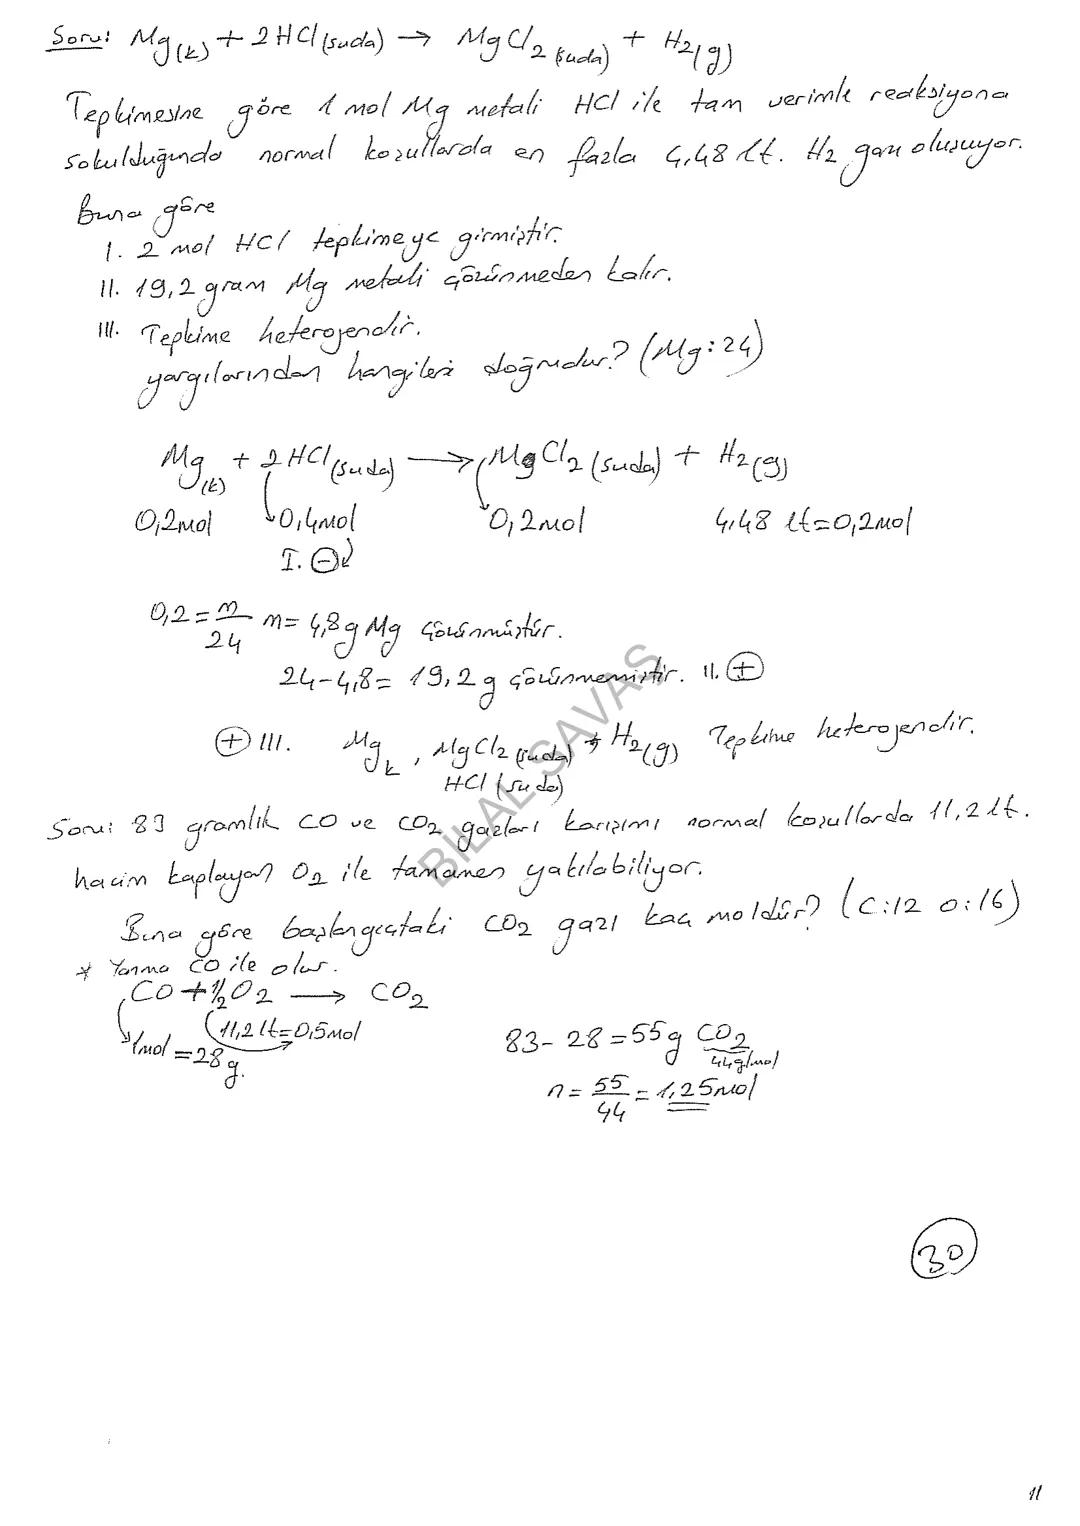 Soru: Mg(k) + 2HCl(suda) → MgCl2 (suda) + H2(g)
Tepkimesine göre 1 mol Mg metali HCl ile tam verimle reaksiyona
sokulduğunda normal koşullarda en fazla 4,48 lt. H2 gazı oluşuyor.
Buna göre
I. 2 mol HCl tepkimeye girmiştir.
II. 19,2 gram Mg metali çözünmeden kalır.
III. Tepkime heterojendir.
yargılarından hangileri doğrudur? (Mg:24)
Mg(k) + 2HCl(suda) → MgCl2 (suda) + H2(g)
0,2mol 0,4mol 0,2mol 4,48 lt=0,2mol
I. ⊖
0,2=m/24 m=4,8g Mg çözünmüştür.
24-4,8= 19,2g çözünmemiştir. II. ⊕
⊕ III. Mgk, MgCl2 (suda) + H2(g) Tepkime heterojendir.
HCl (suda)
BİLAL SAVAŞ
Soru: 83 gramlık CO ve CO2 gazları karışımı normal koşullarda 11,2 lt.
hacim kaplayan O2 ile tamamen yakılabiliyor.
Buna göre başlangıçtaki CO2 gazı kaç moldür? (C:12 O:16)
* Yanma CO ile olur.
CO + ½O2 → CO2
11,2 lt=0,5mol
1mol = 28g.
83-28=55g CO2
44g/mol
n = 55/44 = 1,25mol
30
11